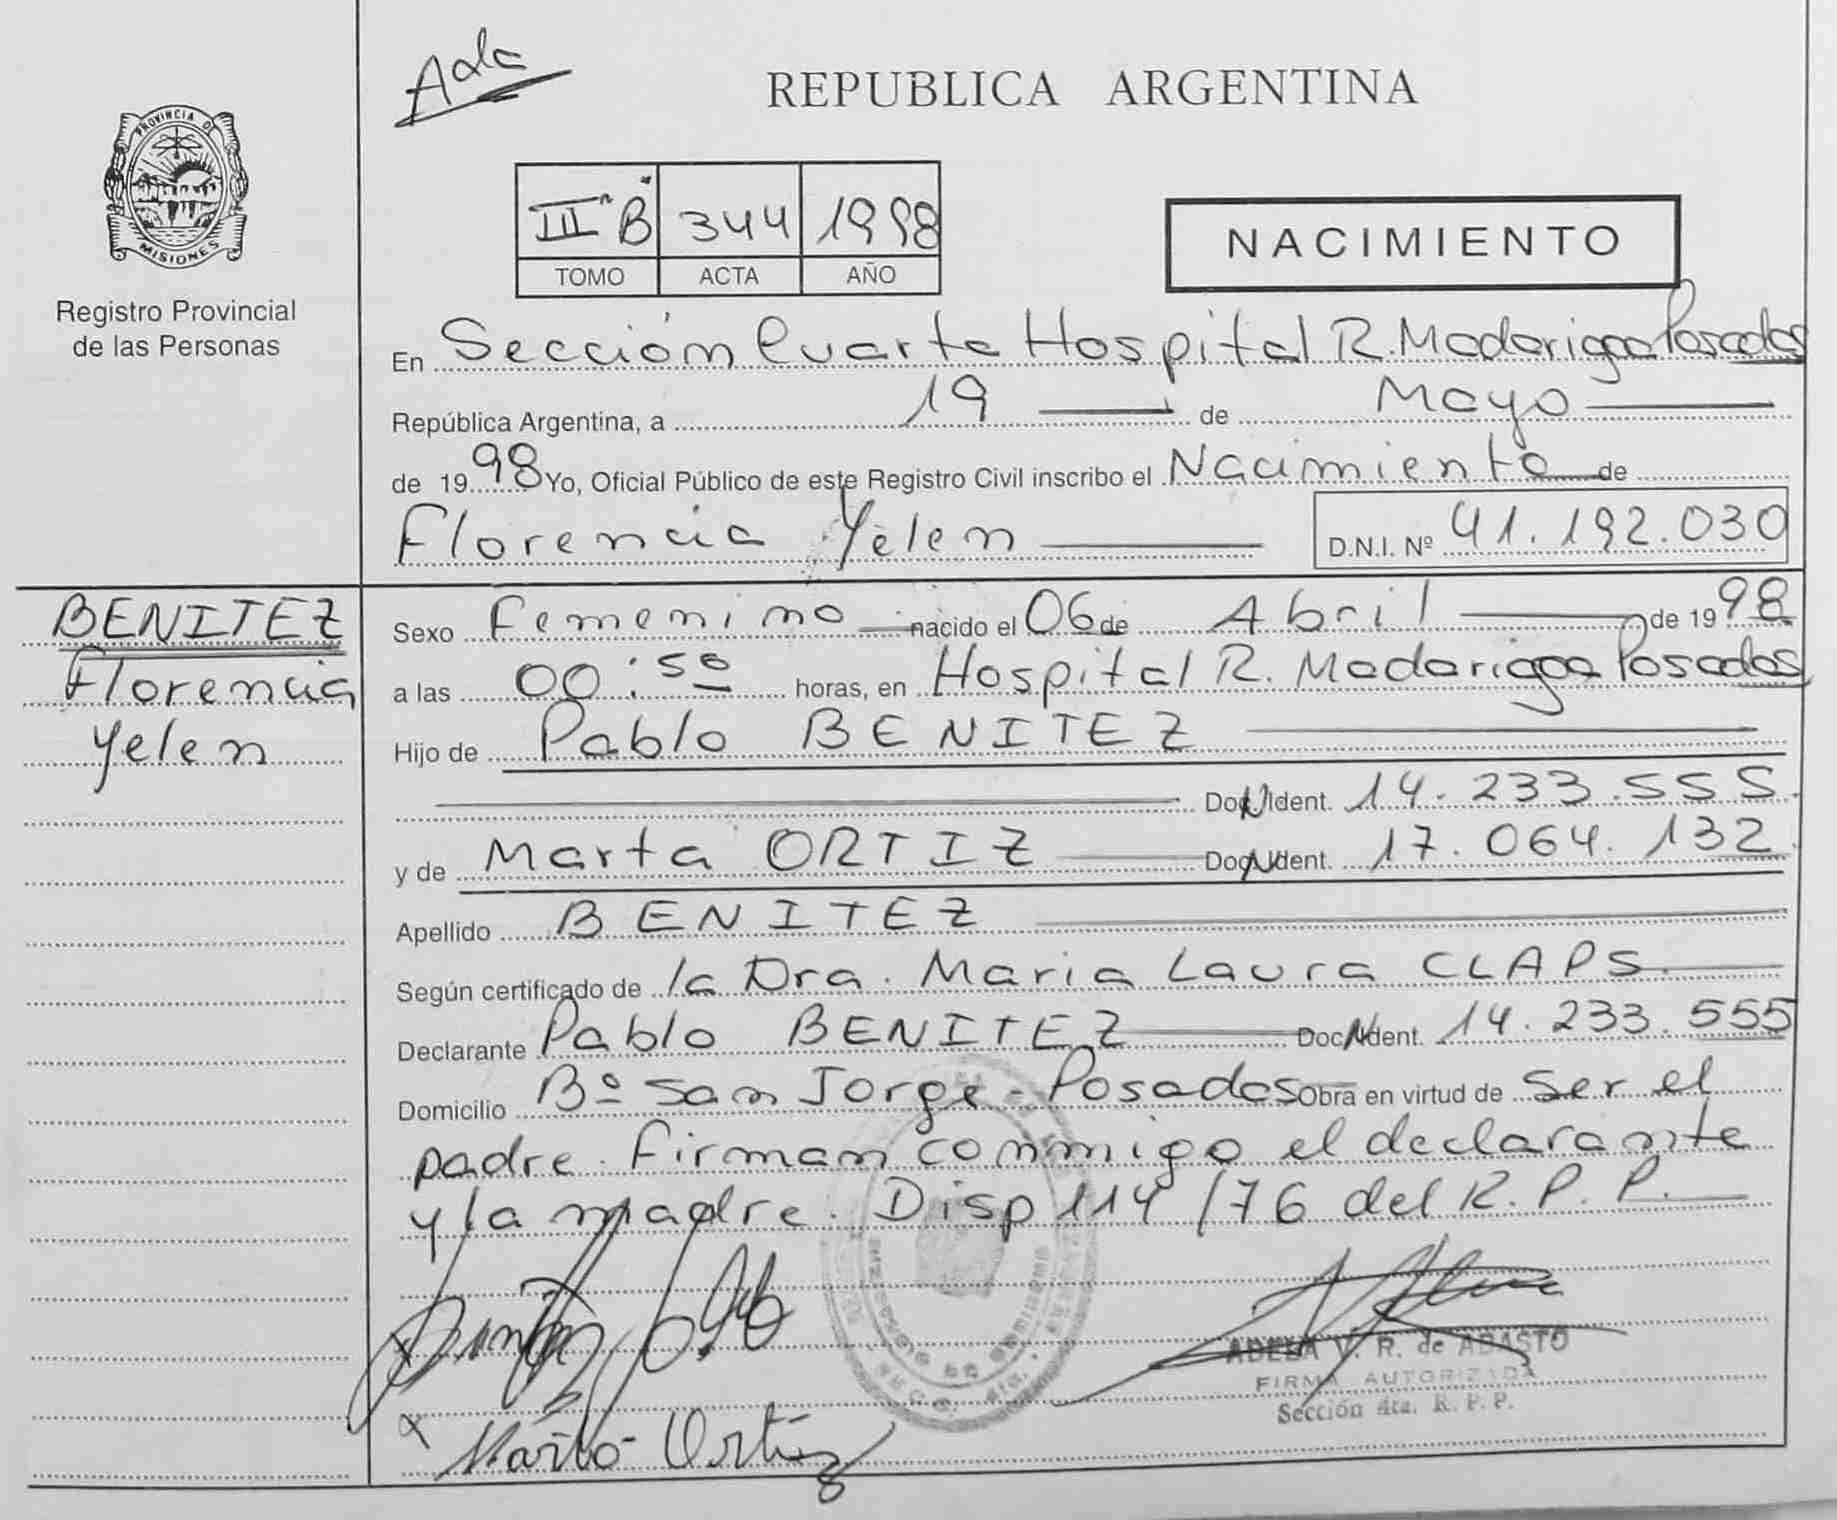 Ada
REPUBLICA ARGENTINA
PROVINCIA DE
MISIONES
Registro Provincial
de las Personas
III "B" 344 1998
TOMO ACTA AÑO
NACIMIENTO
En Sección Cuarta Hospital R. Madariaga Posadas
República Argentina, a 19 de Mayo
de 1998 Yo, Oficial Público de este Registro Civil inscribo el Nacimiento de
Florencia Yelen D.N.I. Nº 41.192.030
BENITEZ
Florencia
Yelen
Sexo Femenino nacido el 06 de Abril de 1998
a las 00:50 horas, en Hospital R. Madariaga Posadas
Hijo de Pablo BENITEZ
Doc. N Ident. 14.233.555.
y de Marta ORTIZ Doc. N Ident. 17.064.132.
Apellido BENITEZ
Según certificado de la Dra. Maria Laura CLAPS.
Declarante Pablo BENITEZ Doc. N Ident. 14.233.555
Domicilio Bº San Jorge - Posadas Obra en virtud de ser el
padre. Firman conmigo el declarante
y la madre. Disp 114/76 del R.P.P.
ADELA V. R. de ABASTO
FIRMA AUTORIZADA
Sección 4ta. R. P. P.
Marta Ortiz